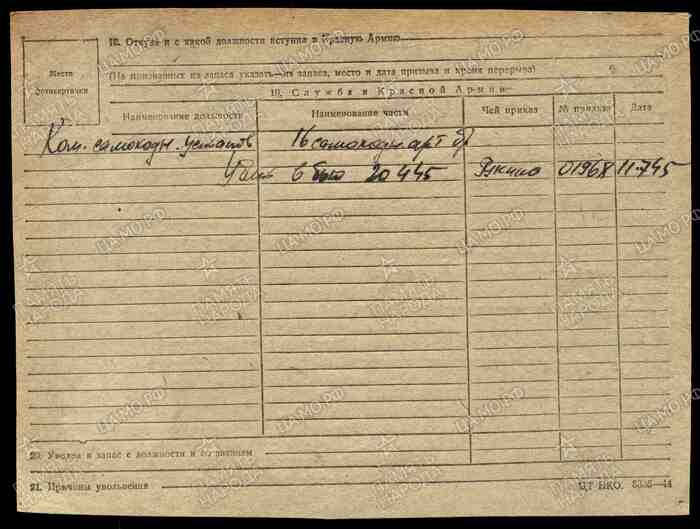 18. Откуда и с какой должности вступил в Красную Армию
Место
фотокарточки
(На призванных из запаса указать—из запаса, место и дата призыва и время перерыва)
19. Служба в Красной Армии
Наименование должности
Наименование части
Чей приказ
№ приказа
Дата
Ком. самоходн. установ
16 самоходн арт бр
в 20 4 45
01968
11-7 45
20. Уволен в запас с должности и по
21. Причины увольнения
ЦТ НКО.
ЦАМО.РФ
ПАМЯТЬ
НАРОДА